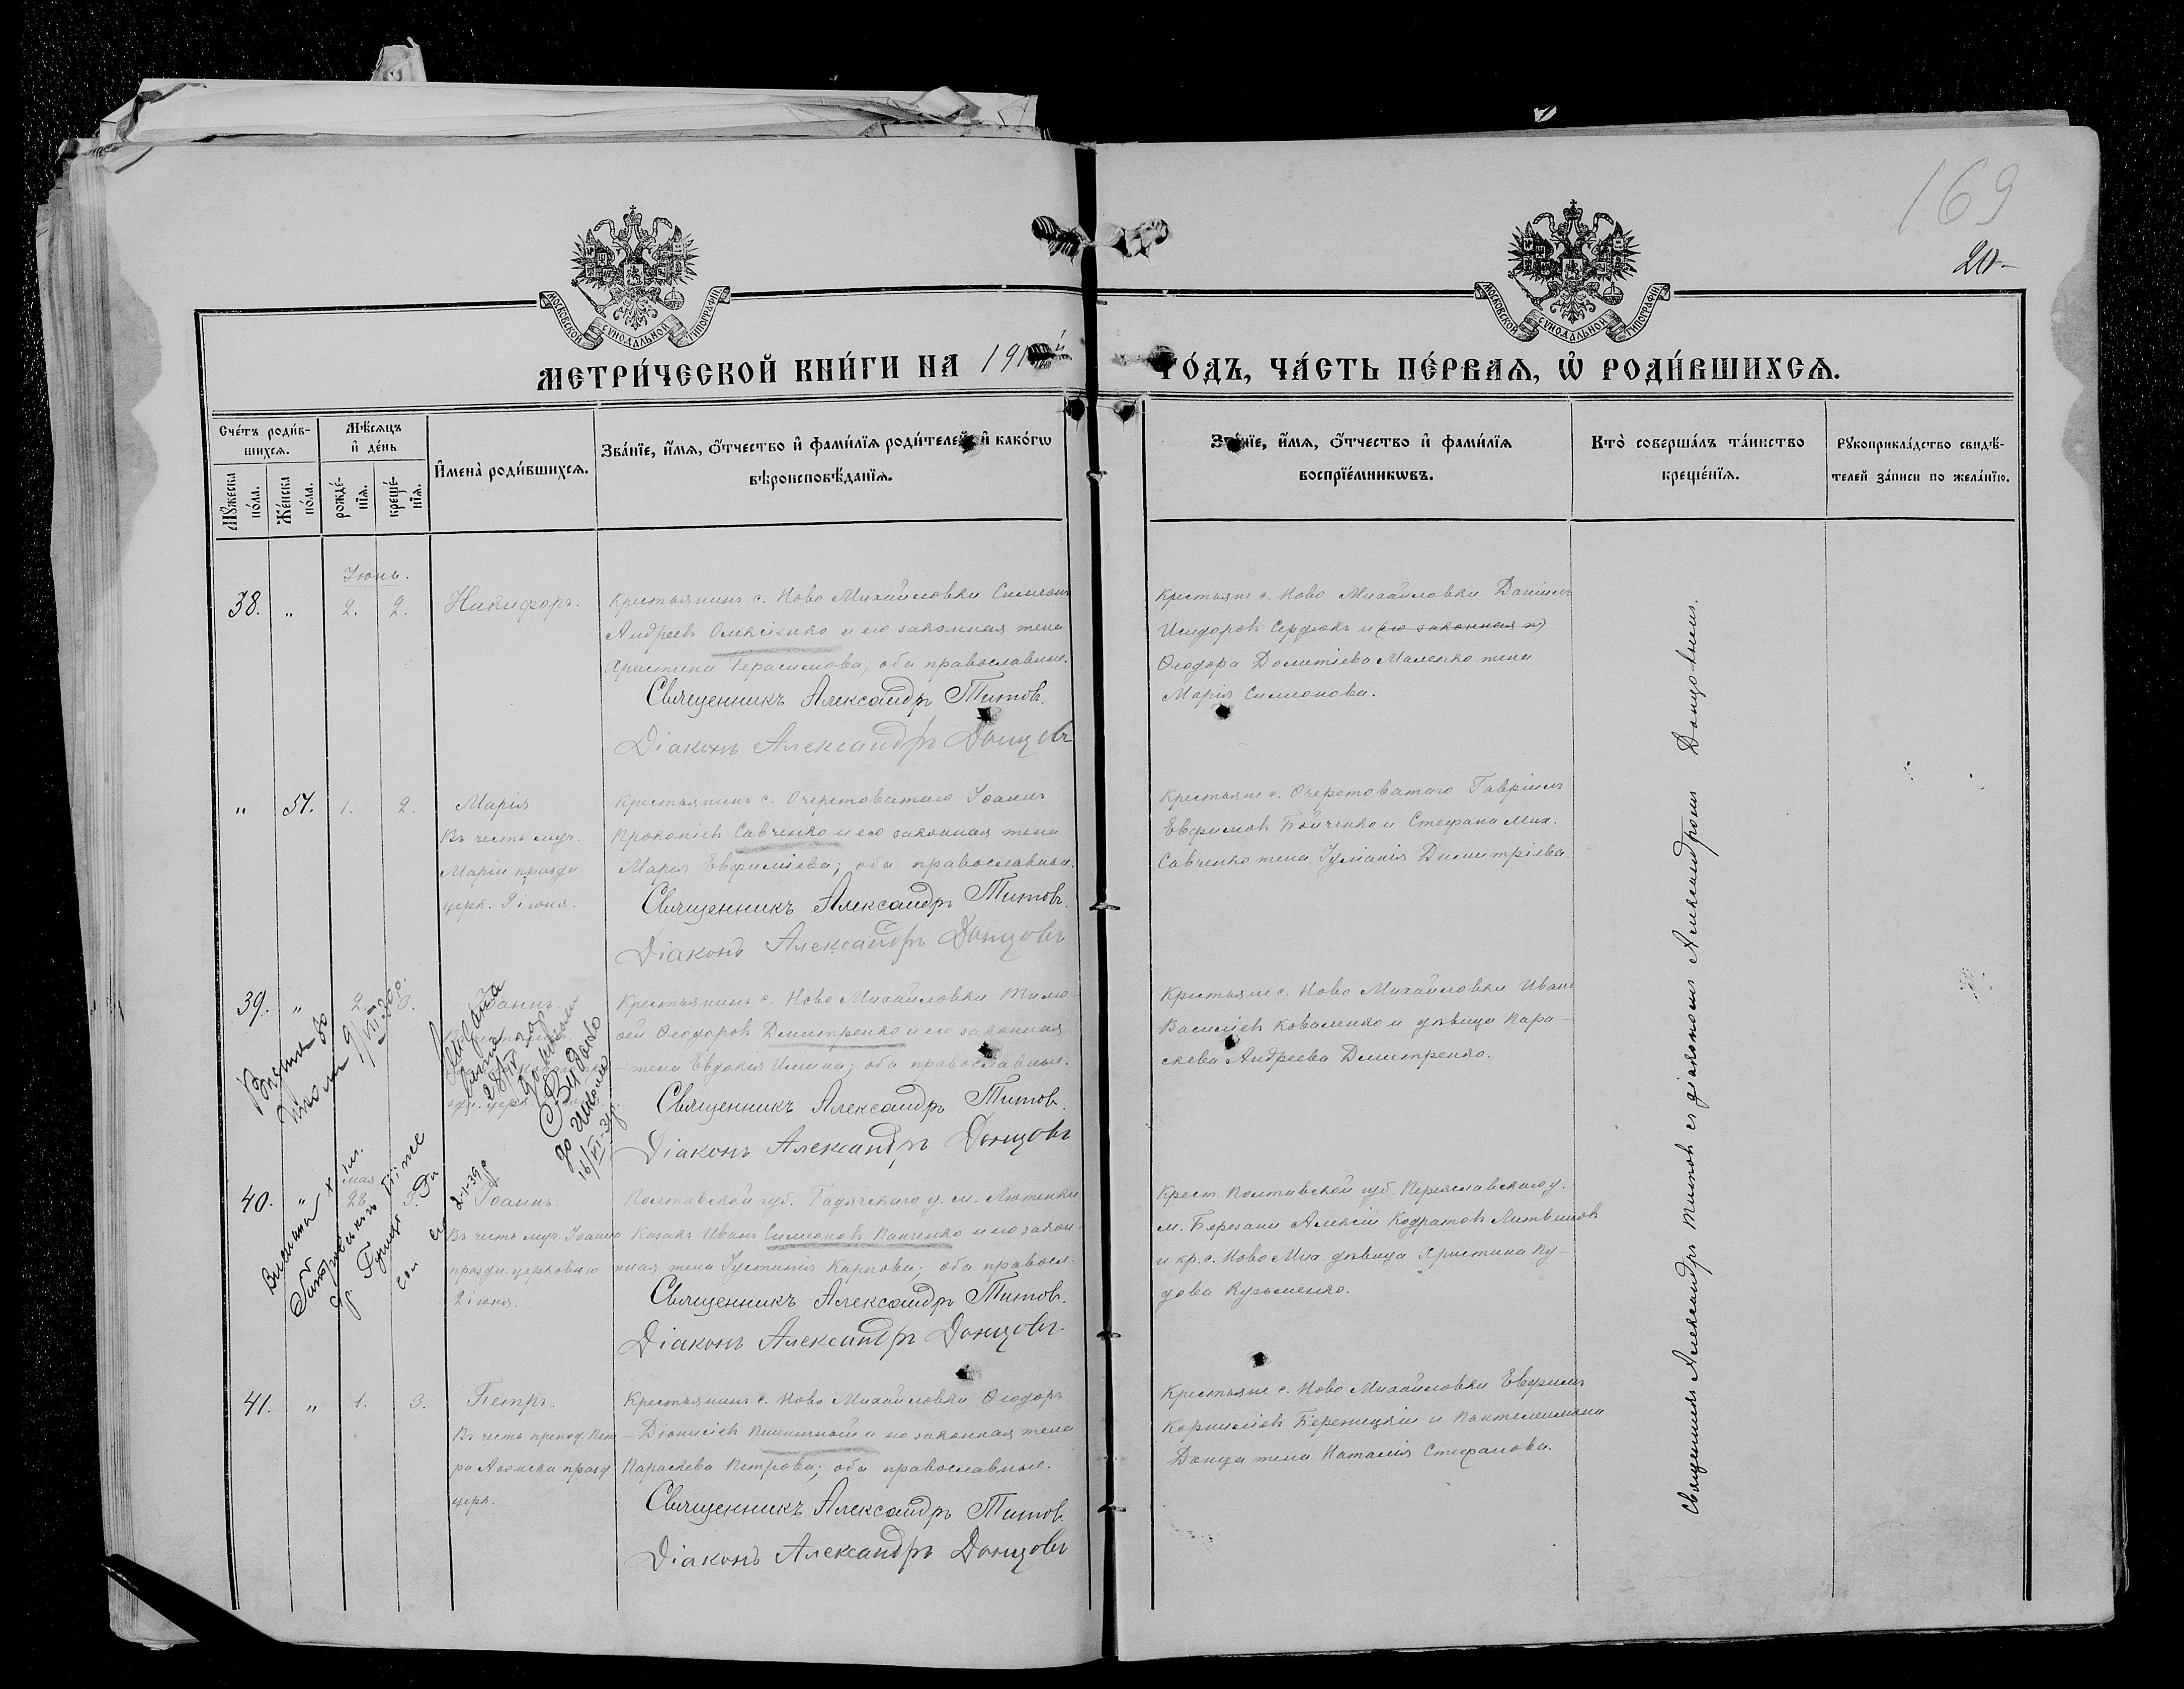 169
20
МОСКОВСКОЙ СѴНОДАЛЬНОЙ ТИПОГРАФІИ
МОСКОВСКОЙ СѴНОДАЛЬНОЙ ТИПОГРАФІИ
МЕТРИ́ЧЕСКОЙ КНИ́ГИ НА 191
ГО́ДЪ, ЧА́СТЬ ПЕ́РВАѦ, Ѡ҆ РОДИ́ВШИХСѦ.
Сче́тъ роди́в-
шихсѧ.
Мꙋ́жеска по́ла.
Же́нска по́ла.
Мѣ́сѧцъ и҆ де́нь
рожде́-
нїѧ.
креще́-
нїѧ.
И҆мена̀ роди́вшихсѧ.
Зва́нїе, и҆́мѧ, ѻ҆́тчество и҆ фами́лїѧ роди́телей, и҆ како́гѡ
вѣроисповѣ́данїѧ.
Зва́нїе, и҆́мѧ, ѻ҆́тчество и҆ фами́лїѧ
воспрїе́мникѡвъ.
Кто̀ соверша́лъ та́инство
креще́нїѧ.
Рꙋкоприкла́дство свидѣ́-
телей за́писи по жела́нїю.
Іюнь.
38. " 2. 2. Никифоръ.
Крестьянинъ с. Ново Михайловки Симеонъ
Андреевъ Олексіенко и его законная жена
Христина Герасимова; оба православные.
Священникъ Александръ Титовъ.
Діаконъ Александръ Донцовъ
Крестьяне с. Ново Михайловки Даніилъ
Исидоровъ Сердюкъ и (его законная ж)
Ѳеодора Дометіева Маленко жена
Марія Симеонова.
" 37. 1. 2. Марія
Въ честь муч.
Маріи праздн.
церк. 9 іюня.
Крестьянинъ с. Очеретоватаго Іоаннъ
Прокопіевъ Савченко и его законная жена
Марія Евфиміева; оба православные.
Священникъ Александръ Титовъ.
Діаконъ Александръ Донцовъ
Крестьяне с. Очеретоватаго Гавріилъ
Евфимовъ Бойченко и Стефана Мих.
Савченко жена Іуліанія Димитріева.
39. " 2. 3. Іоаннъ.
Крестьянинъ с. Ново Михайловки Тимо-
ѳей Ѳеодоровъ Дмитренко и его законная
жена Евдокія Ильина; оба православные.
Священникъ Александръ Титовъ.
Діаконъ Александръ Донцовъ
Крестьяне с. Ново Михайловки Иванъ
Василіевъ Коваленко и дѣвица Пара-
скева Андреева Дмитренко.
Видано
до школи
16/VI-31р.
мая
40. " 28. 3. Іоаннъ.
Въ честь муч. Іоанна
праздн. церковью
2 іюня.
Полтавской губ. Гадячскаго у. м. Лютеньки
Казакъ Иванъ Симеоновъ Панченко и его закон-
ная жена Іустинія Карпова; оба правосл.
Священникъ Александръ Титовъ.
Діаконъ Александръ Донцовъ
Крест. Полтавской губ. Переяславскаго у.
м. Березани Алексій Кодратовъ Литвиновъ
и кр. с. Ново Мих. дѣвица Христина Ну-
дова Кузьменко.
41. " 1. 3. Петръ.
Въ честь препод. Пет-
ра Аѳонска празд.
церк.
Крестьянинъ с. Ново Михайловки Ѳеодоръ
Діонисіевъ Пшеничный и его законная жена
Параскева Петрова; оба православные.
Священникъ Александръ Титовъ.
Діаконъ Александръ Донцовъ
Крестьяне с. Ново Михайловки Евфимъ
Корниліевъ Бережецкій и Пантелеимона
Донца жена Наталія Стефанова.
Священникъ Александръ Титовъ съ діакономъ Александромъ Донцовымъ.